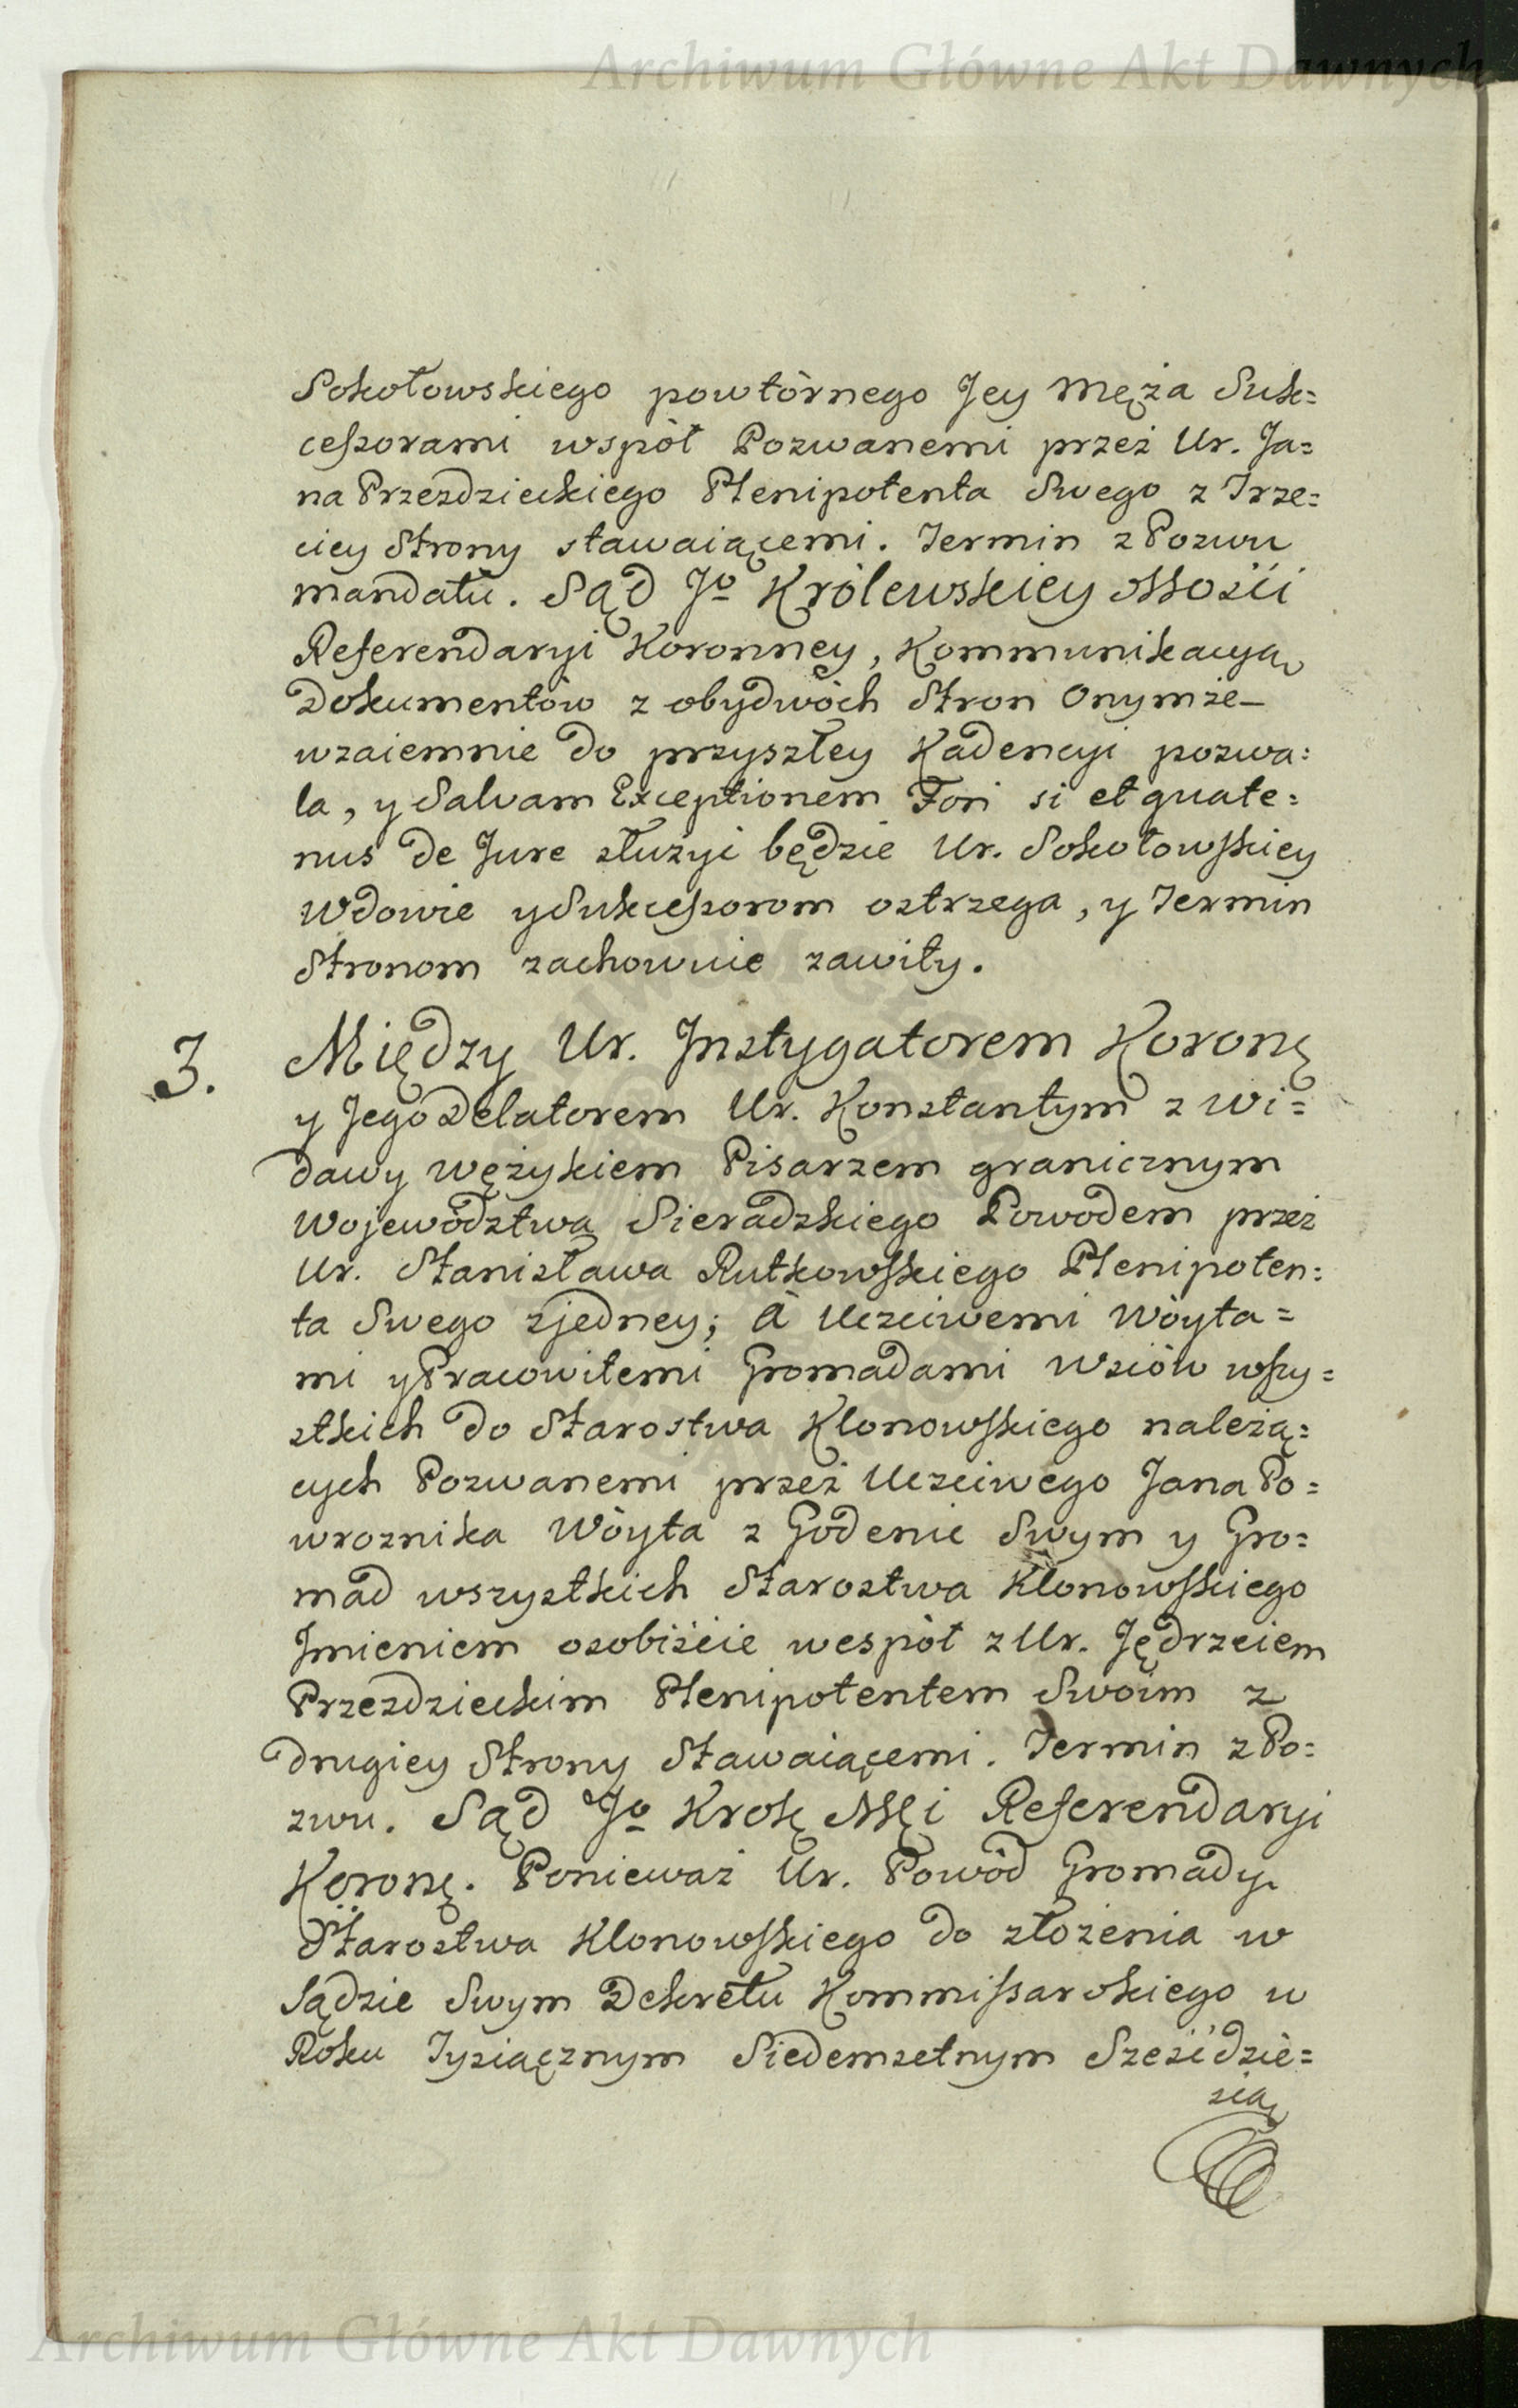 Archiwum Główne Akt Dawnych
Sokołowskiego powtórnego Jey Męża Suk=
ceßorami wspòł Pozwanemi przeż Ur. Ja=
na Przezdzieckiego Plenipotenta Swego z Trze=
ciey Strony stawaiącemi. Termin z Pozwu
mandatu. Sąd Jo Królewskiey Mości
Referendaryi Koronney, Kommunikacyą
Dokumentów z obydwóch Stron Onymże
wzaiemnie do przyszłey Kadencyi pozwa=
la, y Salvam Exceptionem Fori si et quate=
nus de Jure służyć będzie Ur. Sokołowskiey
Wdowie y Sukceßorom ostrzega, y Termin
Stronom zachowuie zawiły.
3. Między Ur. Instygatorem Koronę
y Jego Delatorem Ur. Konstantym z Wi=
dawy Wężykiem Pisarzem granicznym
Województwa Sieradzkiego Powodem przeż
Ur. Stanisława Rutkowskiego Plenipoten=
ta Swego z jedney; à Uczciwemi Wòyta=
mi y Pracowitemi Gromadami Wsiów wszy=
stkich do Starostwa Klonowskiego należą=
cych Pozwanemi przeż Uczciwego Jana Po=
wroznika Wòyta z Godenic Swym y Gro=
mad wszystkich Starostwa Klonowskiego
Imieniem osobiście wespòł z Ur. Jędrzeiem
Przezdzieckim Plenipotentem Swoim z
drugiey Strony Stawaiącemi. Termin z Po=
zwu. Sąd Jo Krolę Mści Referendaryi
Koronę. Ponieważ Ur. Powòd Gromady
Starostwa Klonowskiego do złożenia w
Sądzie Swym Dekretu Kommißarskiego w
Roku Tysiącznym Siedemsetnym Sześćdzie=
sią
Archiwum Główne Akt Dawnych